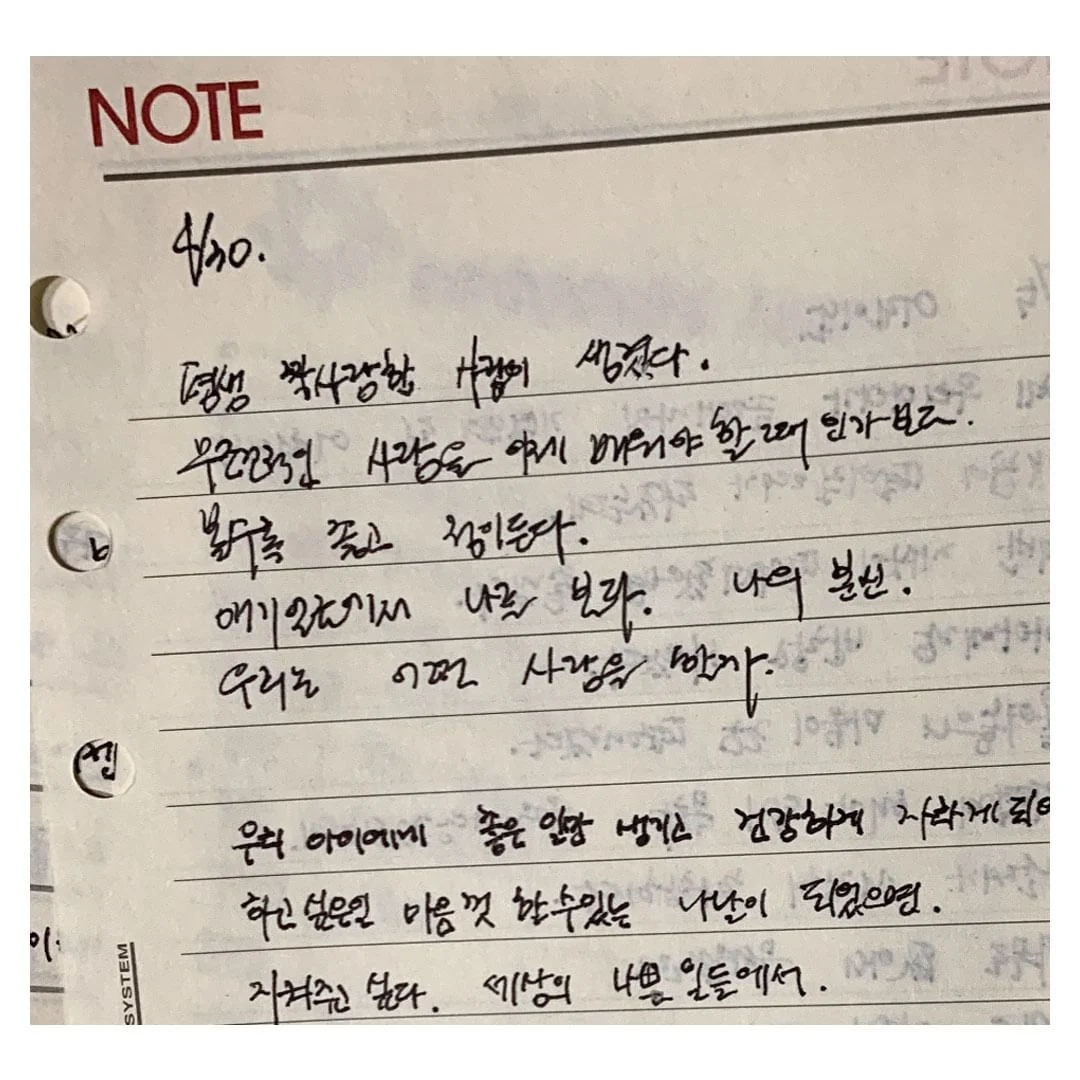 NOTE
4/30.
평생 짝사랑할 사람이 생겼다.
무조건적인 사랑을 이제 배워야 할 때 인가보다.
볼수록 좋고 정이든다.
애기얼굴에서 나를 본다. 나의 분신.
우리는 어떤 사랑을 할까.
우리 아이에게 좋은 일만 생기고 건강하게 자라게 되어
하고싶은일 마음껏 할수있는 나날이 되었으면.
지켜주고 싶다. 세상의 나쁜 일들에서.
SYSTEM